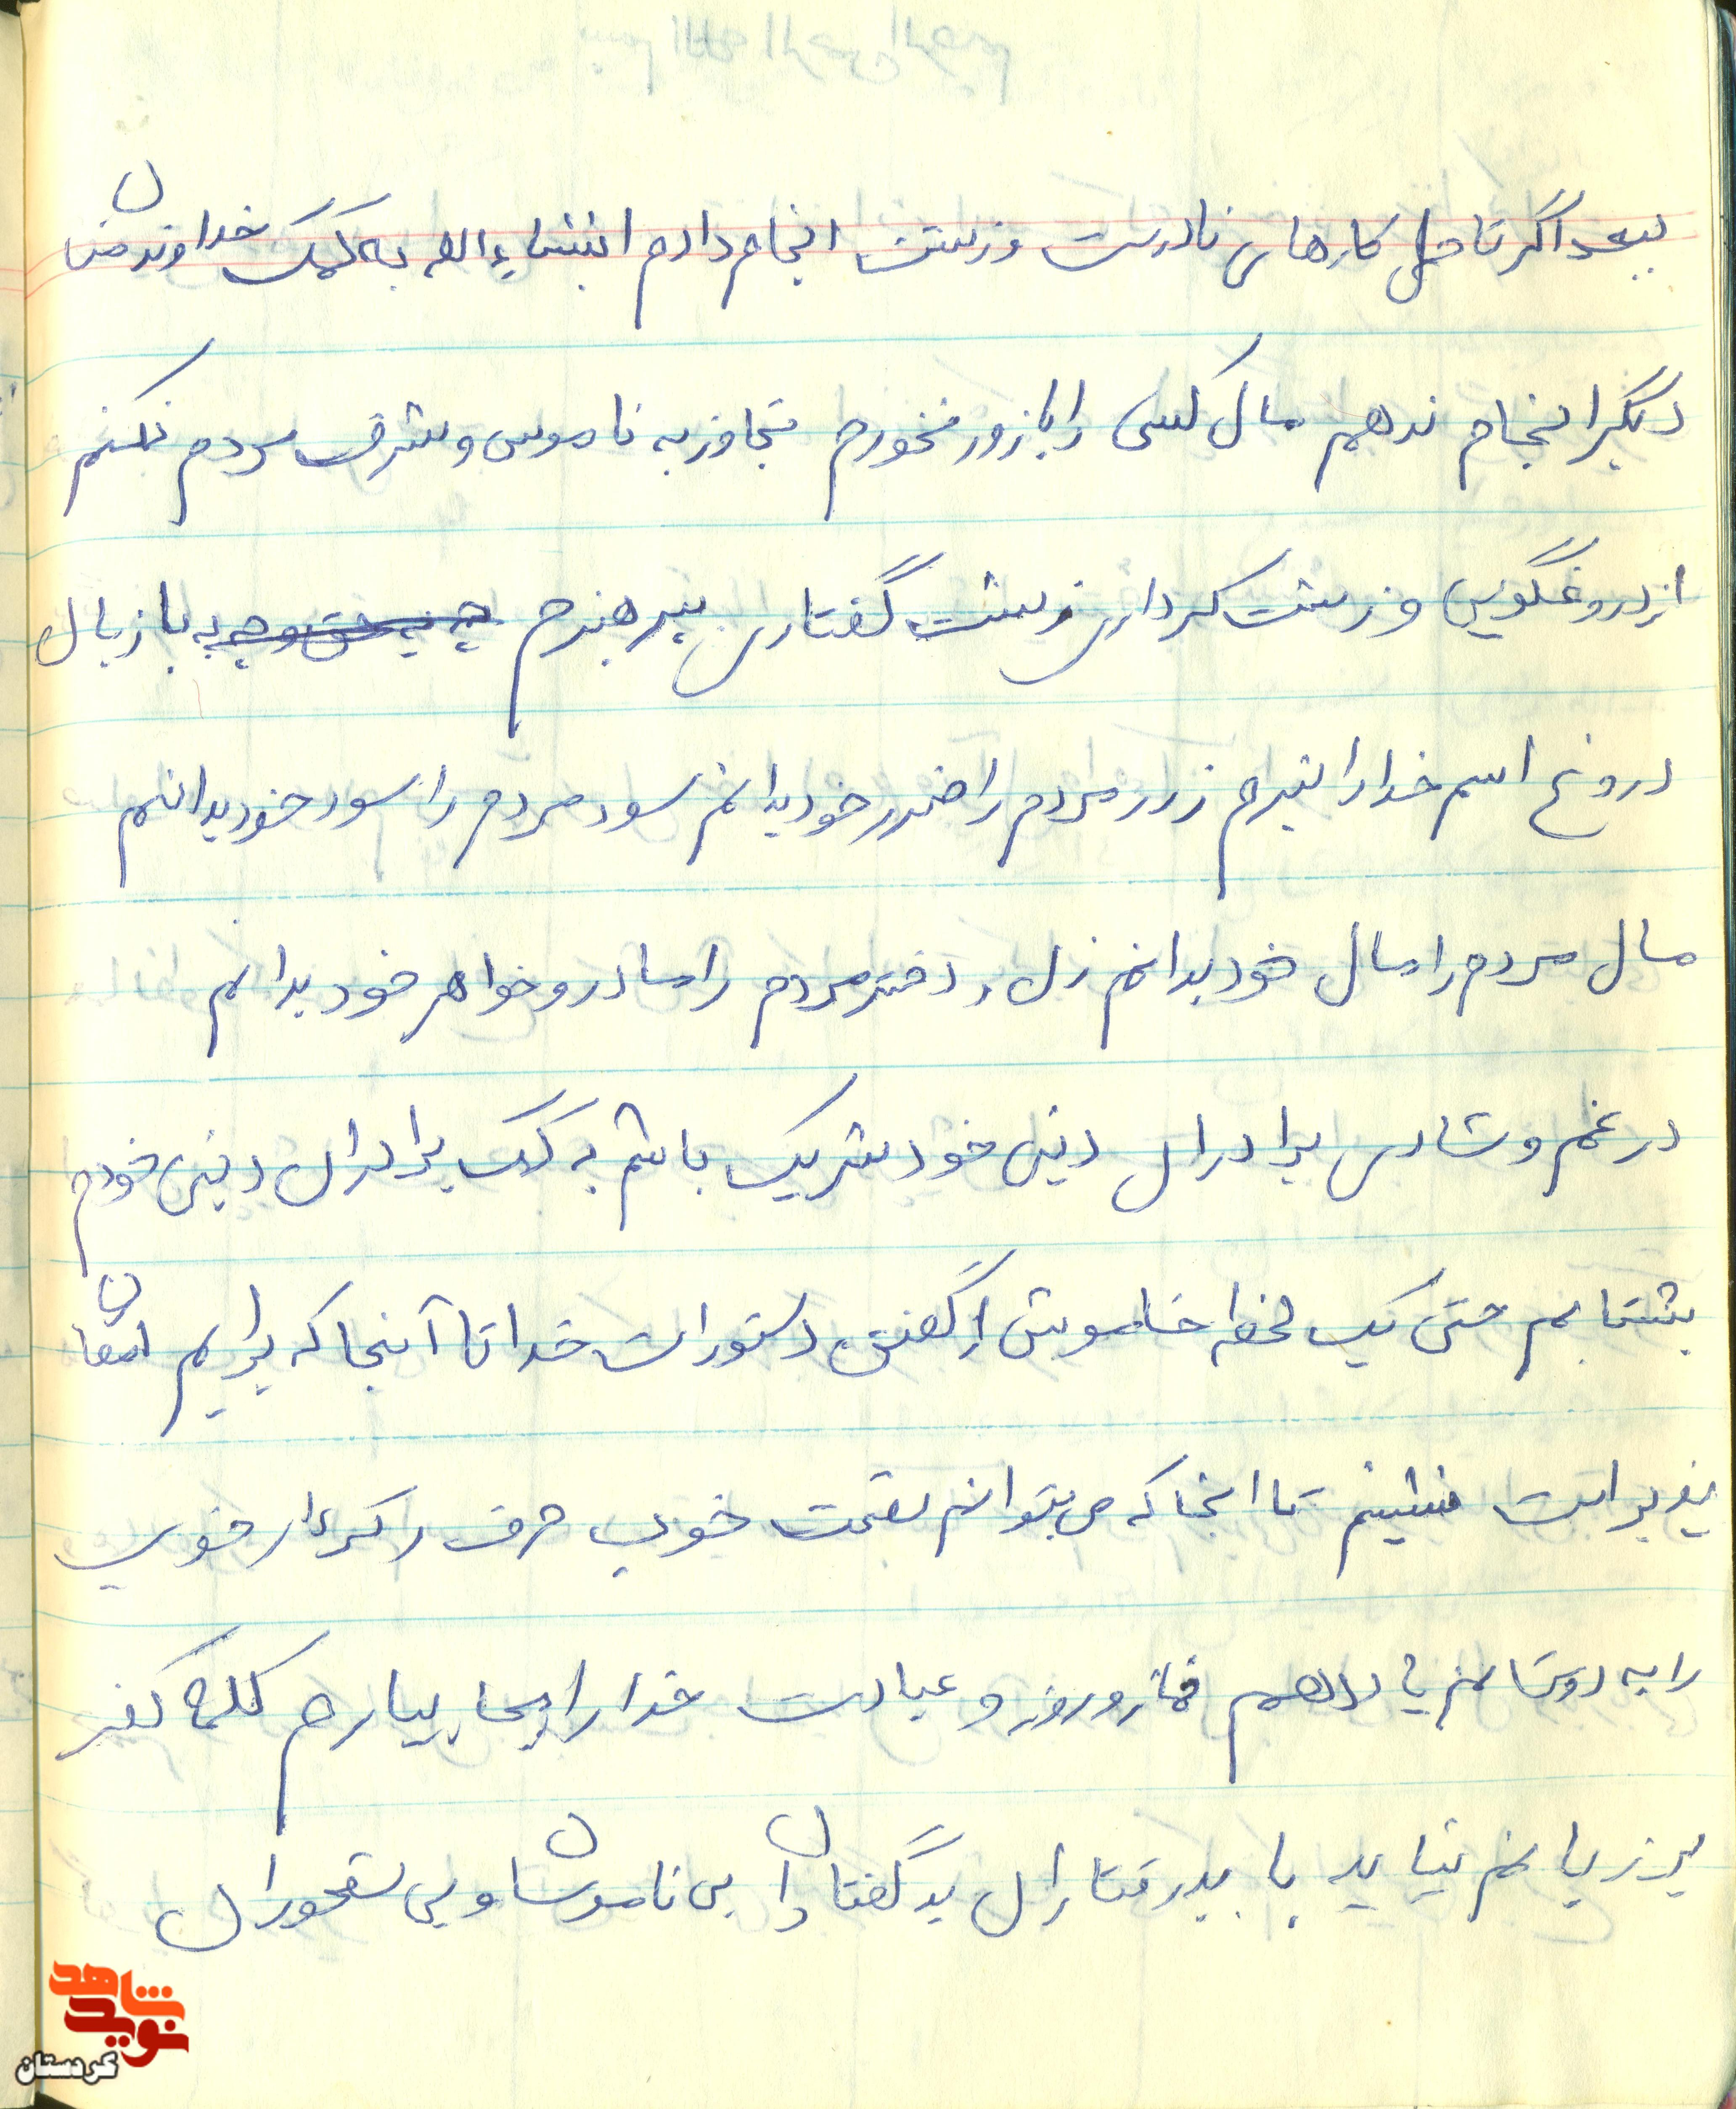 ببعد اگر تا حال کارهای نادرست و زشت انجام دادم انشاءالله به کمک خداوند منان
دیگر انجام ندهم مال کسی را بازور نخورم تجاوز به ناموس و شرف مردم نکنم
از دروغگویی و زشت کرداری زشت گفتاری بپرهیزم با زبان
دروغ اسم خدا را نبرم زرر مردم را ضرر خود بدانم سود مردم را سود خود بدانم
مال مردم را مال خود بدانم زن و دختر مردم را مادر و خواهر خود بدانم
در غم و شادی برادران دینی خود شریک باشم به کمک برادران دینی خودم
بشتابم حتی یک لحظه خاموش از گفتن دستورات خدا تا آنجا که برایم امکان
پذیر است ننشینم تا انجا که می‌توانم نصیحت خوب حرف و کردار خوب
را به دوستانم یاد دهم نماز و روزه و عبادت خدا را بجا بیارم کلمه کفر
بر زبانم نیاید با بدرفتاران بدگفتاران بی ناموسان و بی شعوران
شاهد
نوید
کردستان